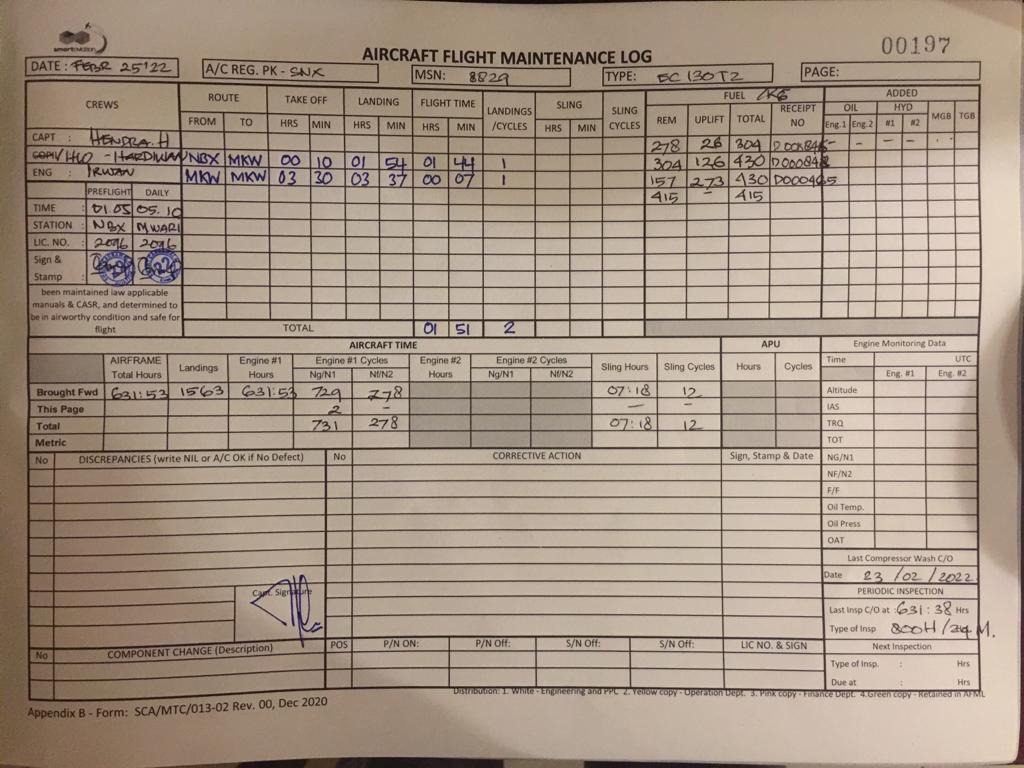 smartaviation
AIRCRAFT FLIGHT MAINTENANCE LOG
00197
DATE : FEBR 25'22 A/C REG. PK - SNX MSN: 8829 TYPE: EC 130T2 PAGE:
CREWS ROUTE TAKE OFF LANDING FLIGHT TIME LANDINGS /CYCLES SLING SLING CYCLES FUEL /KG ADDED
FROM TO HRS MIN HRS MIN HRS MIN HRS MIN REM UPLIFT TOTAL RECEIPT NO OIL HYD MGB TGB
Eng.1 Eng.2 #1 #2
CAPT : HENDRA.H 278 26 304 - - - - -
HLO - HARDIWAN NBX MKW 00 10 01 54 01 44 1 304 126 430
ENG : IRWAN MKW MKW 03 30 03 37 00 07 1 157 273 430
415 - 415
PREFLIGHT DAILY
TIME : 01.05 05.10
STATION : NBX MWARI
LIC. NO. : 2096 2096
Sign & Stamp :
been maintained iaw applicable
manuals & CASR, and determined to
be in airworthy condition and safe for
flight
TOTAL 01 51 2
AIRCRAFT TIME APU Engine Monitoring Data
AIRFRAME Total Hours Landings Engine #1 Hours Engine #1 Cycles Engine #2 Hours Engine #2 Cycles Sling Hours Sling Cycles Hours Cycles Time UTC
Ng/N1 Nf/N2 Ng/N1 Nf/N2 Eng. #1 Eng. #2
Brought Fwd 631:53 1563 631:53 729 278 07:18 12 Altitude
This Page 2 - - - IAS
Total 731 278 07:18 12 TRQ
Metric TOT
No DISCREPANCIES (write NIL or A/C OK if No Defect) No CORRECTIVE ACTION Sign, Stamp & Date NG/N1
NF/N2
F/F
Oil Temp.
Oil Press
OAT
Last Compressor Wash C/O
Date 23 / 02 / 2022
Capt. Signature
PERIODIC INSPECTION
Last Insp C/O at : 631 : 38 Hrs
Type of Insp 800H / 24 M.
No COMPONENT CHANGE (Description) POS P/N ON: P/N Off: S/N Off: S/N Off: LIC NO. & SIGN Next Inspection
Type of Insp. : Hrs
Due at : Hrs
Distribution: 1. White - Engineering and PPC 2. Yellow copy - Operation Dept. 3. Pink copy - Finance Dept. 4.Green copy - Retained in AFML
Appendix B - Form: SCA/MTC/013-02 Rev. 00, Dec 2020